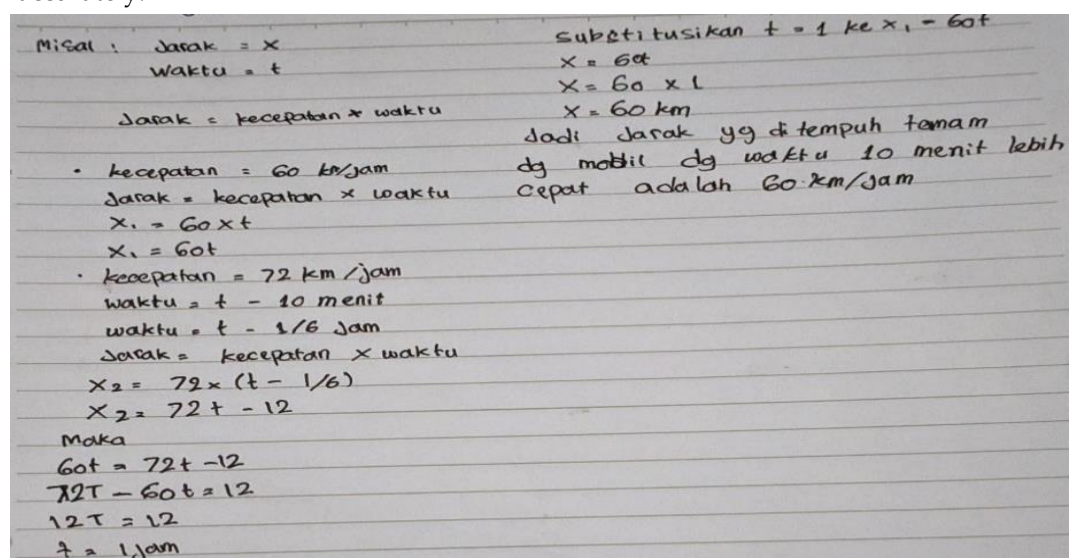 Misal : Jarak = x
Waktu = t
Jarak = kecepatan * waktu
• kecepatan = 60 km/jam
Jarak = kecepatan x waktu
X₁ = 60 x t
X₁ = 60t
• kecepatan = 72 km/jam
waktu = t - 10 menit
waktu = t - 1/6 Jam
Jarak = kecepatan x waktu
X₂ = 72 x (t - 1/6)
X₂ = 72t - 12
Maka
60t = 72t - 12
72T - 60t = 12
12T = 12
t = 1 Jam
Substitusikan t = 1 ke x₁ = 60t
X = 60t
X = 60 x 1
X = 60 km
Jadi Jarak yg di tempuh
dg mobil dg waktu 10 menit lebih
cepat adalah 60 km/Jam